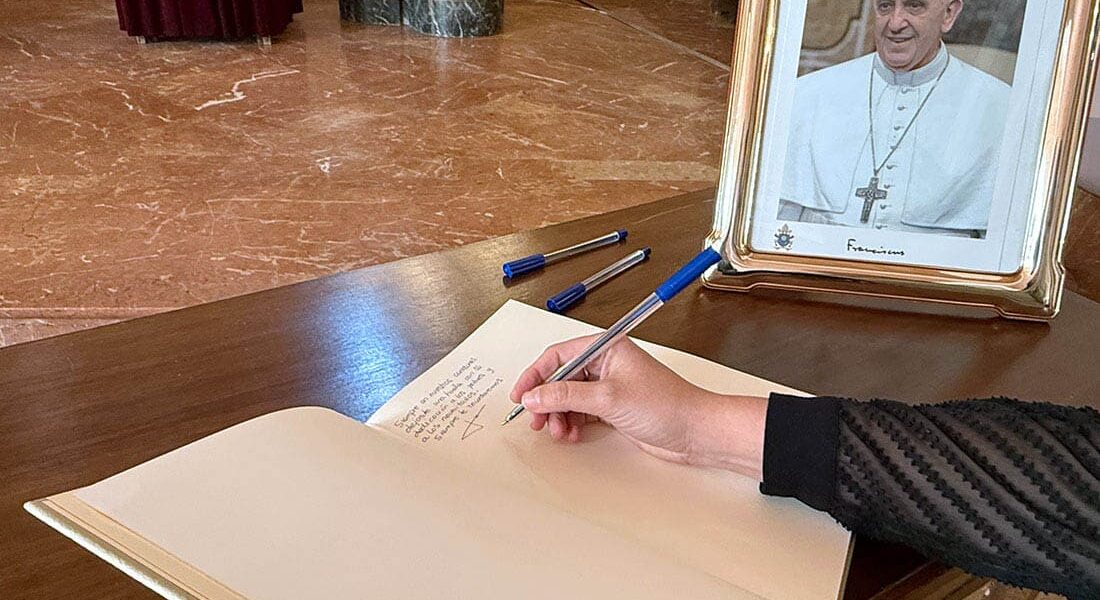 Siempre en nuestros corazones
dejaste una huella con tu
dedicación a los pobres y
a los necesitados.
Siempre te recordaremos
Franciscus